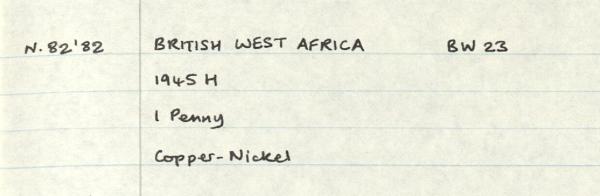 N. 82'82 BRITISH WEST AFRICA BW 23
1945 H
1 Penny
Copper-Nickel